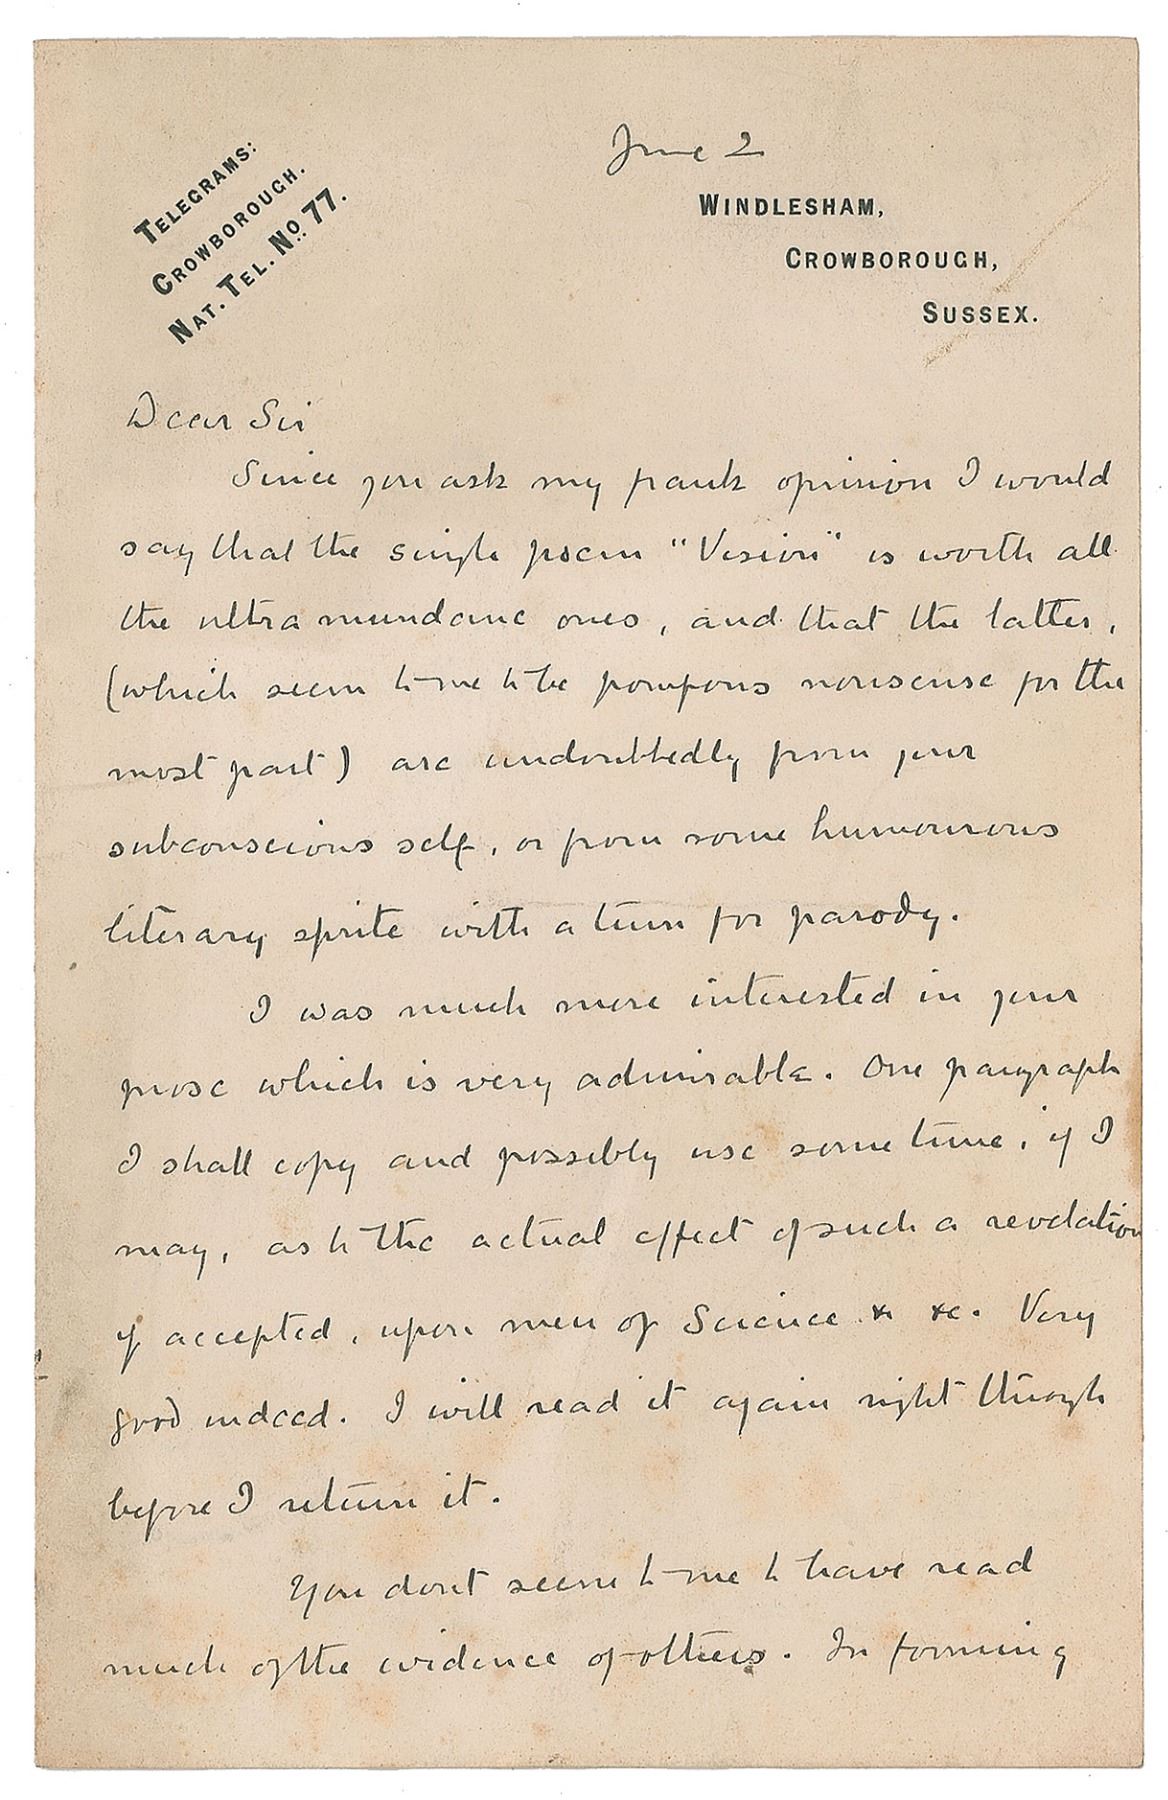 June 2
TELEGRAMS:
CROWBOROUGH.
NAT. TEL. No. 77.
WINDLESHAM,
CROWBOROUGH,
SUSSEX.
Dear Sir
Since you ask my frank opinion I would
say that the single poem "Vision" is worth all
the ultra mundane ones, and that the latter,
(which seem to me to be pompous nonsense for the
most part) are undoubtedly from your
subconscious self, or from some humourous
literary sprite with a turn for parody.
I was much more interested in your
prose which is very admirable. One paragraph
I shall copy and possibly use some time, if I
may, as to the actual effect of such a revelation
if accepted, upon men of Science & &c. Very
good indeed. I will read it again right through
before I return it.
You dont seem to me to have read
much of the evidence of others. In forming